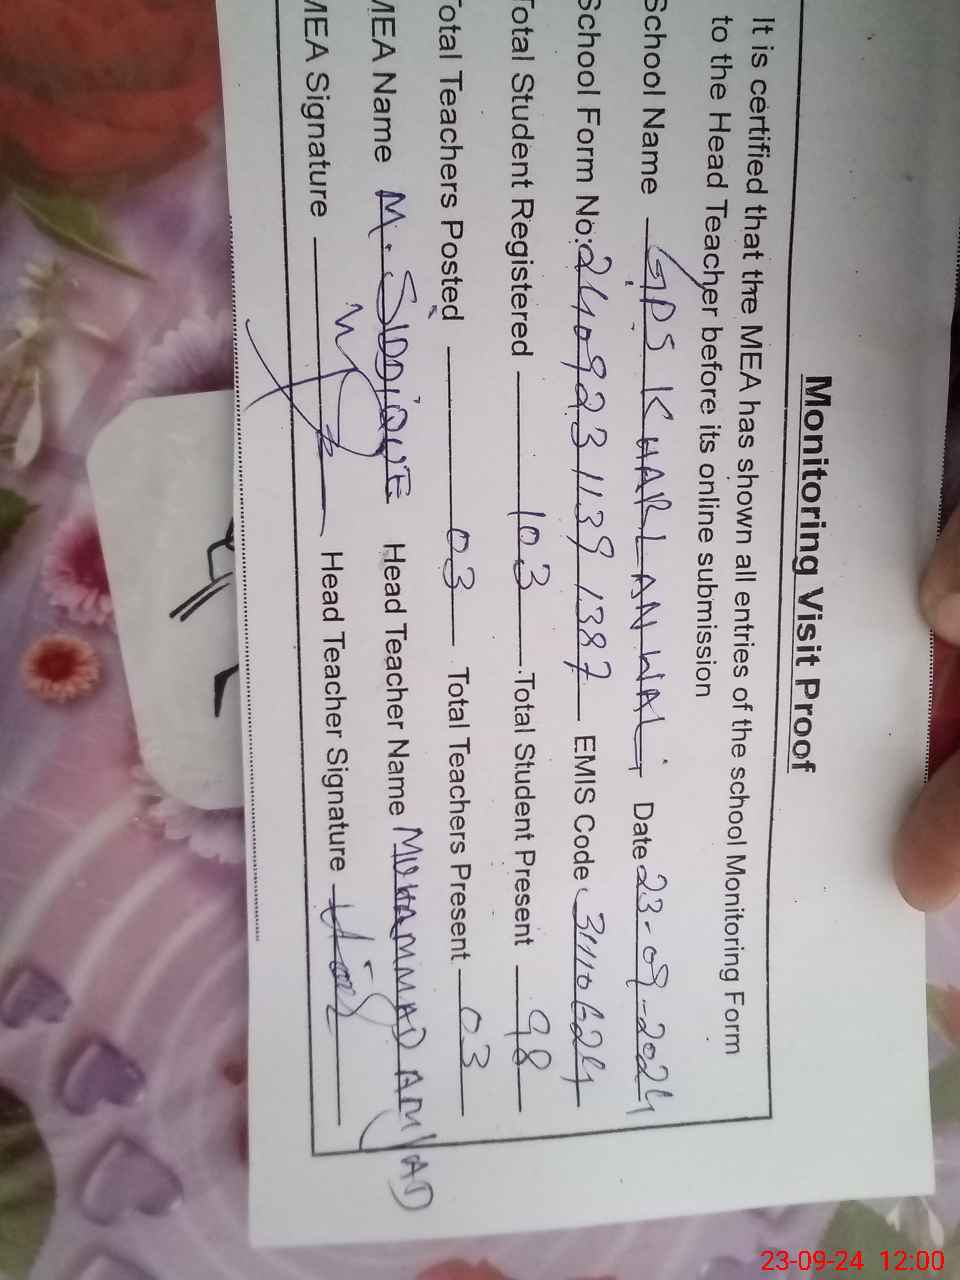 Monitoring Visit Proof
It is certified that the MEA has shown all entries of the school Monitoring Form
to the Head Teacher before its online submission
School Name GPS KHARLAN WALI Date 23-09-2024
School Form No: 24092311391387 EMIS Code 31110624
Total Student Registered 103 Total Student Present 98
Total Teachers Posted 03 Total Teachers Present 03
MEA Name M. SIDDIQUE Head Teacher Name MUHAMMAD AMJAD
MEA Signature Head Teacher Signature
23-09-24 12:00